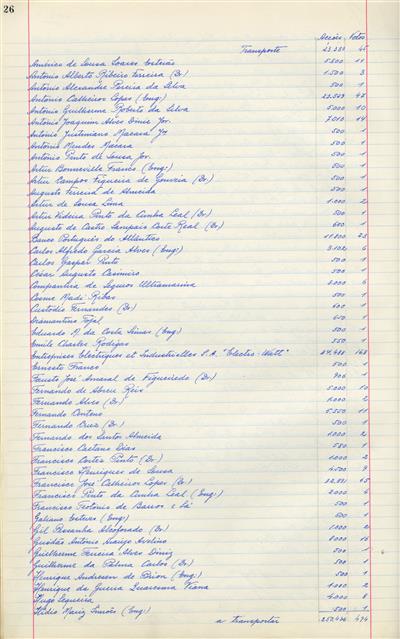 26
Acções Votos
Transporte 23.251 45
Américo de Sousa Soares 5.500 11
António Alberto Ribeiro Ferreira (Dr) 1.500 3
António Alexandre Pereira da Silva 500 1
António Calheiros Lopes (Eng:)
António Guilherme Roberto da Silva 5.000 10
António Joaquim Alves Diniz Jor. 7.010 14
António Justiniano 500 1
António Mendes 500 1
António Pinto de Sousa Jor. 500 1
Artur Bonneville Franco (Eng:) 500 1
Artur Campos Figueira de Gouveia (Dr) 500 1
Augusto Ferreira de Almeida 500 1
Artur de Sousa Lima 1.000 2
Artur Videira Pinto da Cunha Leal (Dr) 500 1
Augusto de Castro Sampaio Corte Real (Dr) 600 1
Banco Português do Atlântico 11.800 23
Carlos Alfredo Garcia Alves (Eng:) 3.102 6
Carlos Gaspar Pinto 500 1
César Augusto Casimiro 500 1
Companhia de Seguros Ultramarina 3.000 6
Cosme Ribas 500 1
Custódio Fernandes (Dr) 600 1
Diamantino Tojal 650 1
Eduardo M. da Costa (Eng) 500 1
Emile Charles Rodrigas 550 1
Entreprises Électriques et Industrielles S.A. "Electro-Watt" 168
Ernesto Franco 500 1
Fausto José Amaral de Figueiredo (Dr) 906 1
Fernando de Abreu Reis 5.000 10
Fernando Alves (Dr) 1.000 2
Fernando Centeno 5.550 11
Fernando Cruz (Dr) 500 1
Fernando dos Santos Almeida 1.000 2
Francisco Caetano Dias 1
Francisco Cortez Pinto (Dr) 1.000 2
Francisco Henriques de Sousa 4.500 9
Francisco José Calheiros Lopes (Dr)
Francisco Pinto da Cunha Leal (Eng:)
Francisco Teotónio de Barros e Sá 500 1
Galiano (Eng:) 1
Gil Alcoforado (Dr) 1.000 2
Gusdão António Araújo Avelino 8.000 16
Guilherme Ferreira Alves Diniz 500 1
Guilherme da Palma Carlos (Dr) 500 1
Henrique Anderson de (Eng:) 1
Henrique da Guerra Quaresma Viana 1.000 2
Hugo Sequeira 4.000 8
Ilídio Mariz Simões (Eng:) 500 1
a transportar 494